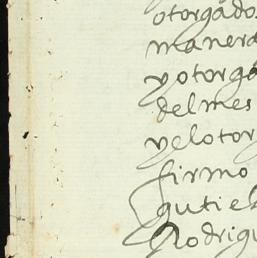 otorgado
manera
y otorga
del mes
y el otor
firmo
gutie
Rodrigu